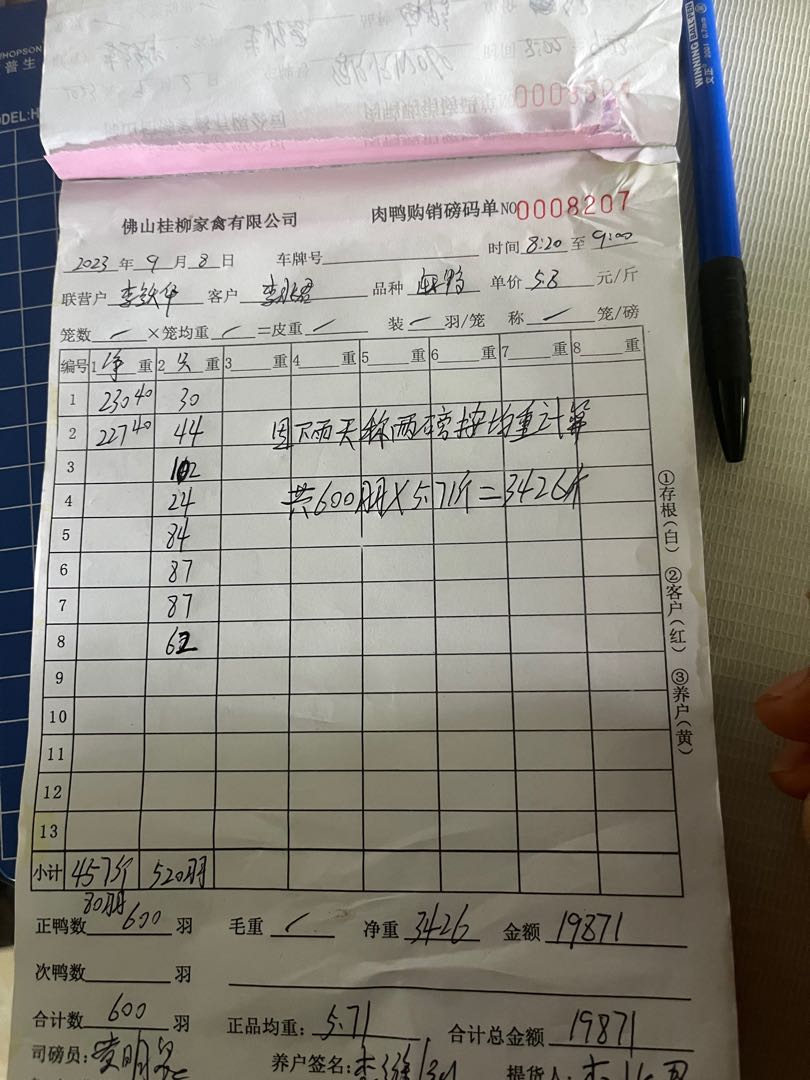 HOPSON
普生
ODEL:H
佛山桂柳家禽有限公司 肉鸭购销磅码单 NO 0008207
2023 年 9 月 8 日 车牌号 时间 8:20 至 9:00
联营户 李铁华 客户 品种 单价 5.8 元/斤
笼数 / ×笼均重 / =皮重 / 装 / 羽/笼 称 / 笼/磅
编号 1 净 重 2 只 重 3 重 4 重 5 重 6 重 7 重 8 重
1 230 40 30
2 227 40 44 因下雨天称两磅按均重计算
3 102
4 24 共600羽×5.71斤=3426斤
5 84
6 87
7 87
8 62
9
10
11
12
13
小计 457斤 520羽
80羽
正鸭数 600 羽 毛重 / 净重 3426 金额 19871
次鸭数 羽
合计数 600 羽 正品均重: 5.71 合计总金额 19871
司磅员: 养户签名: 提货人:
①存根(白) ②客户(红) ③养户(黄)